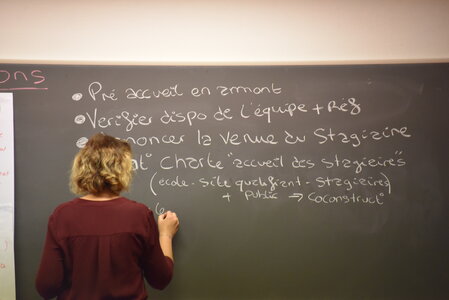 ons
• Pré accueil en amont
• Vérifier dispo de l'équipe + Réf
noncer la venue du Stagiaire
Charte "accueil des stagiaires"
(école - site qualifiant - Stagiaires)
+ Public → Coconstruct°